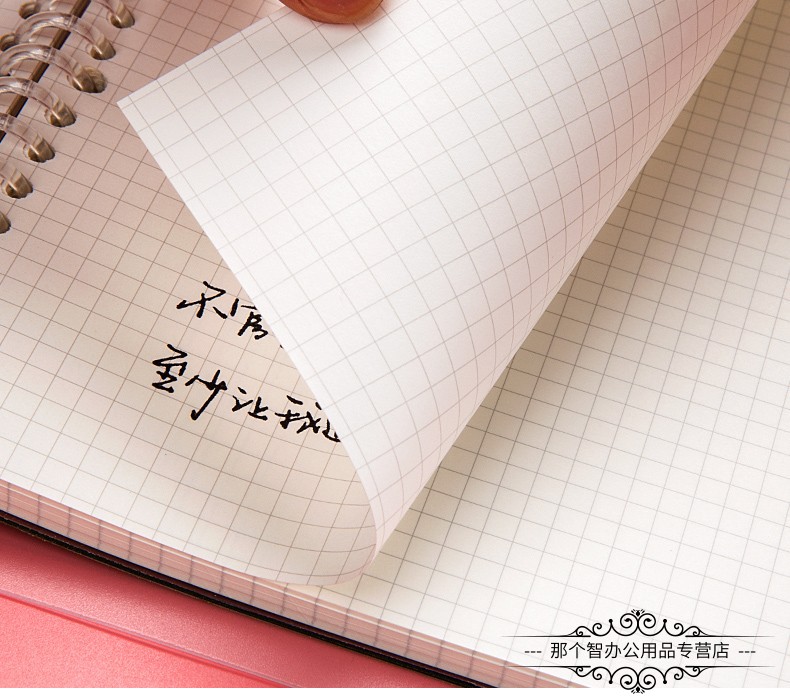 不
至少让我
--- 那个智办公用品专营店 ---